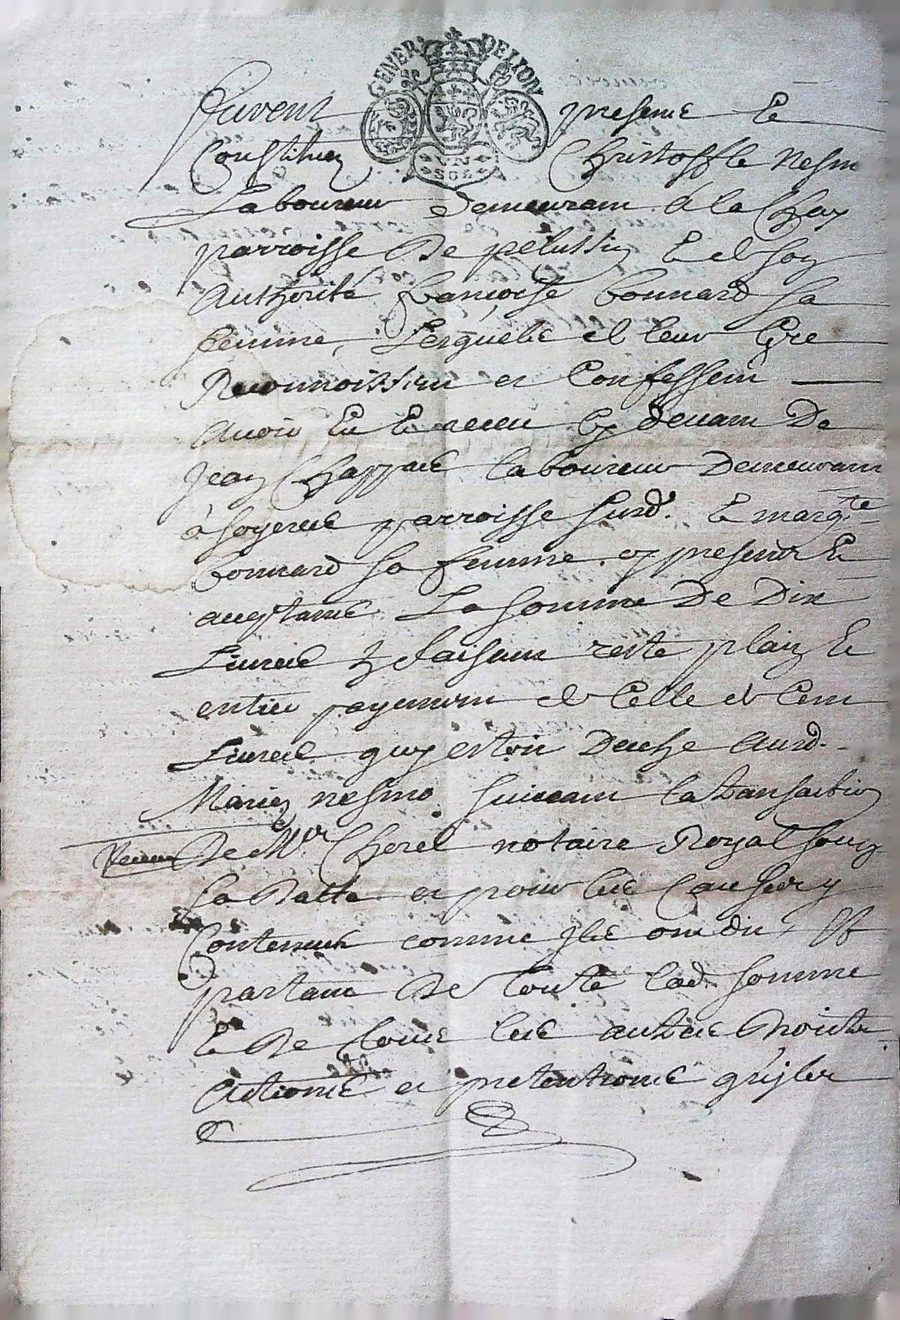 GENER DE LION
SOL
Furent present Et
Constitues Christoffle nesm
Laboureur demeurant a la Chaz
parroisse de pelussin Et de soy
Authorite francoise bonnard sa
femme, Lesquels de leur Gre
Reconnoissent et Confessent
Avoir Eu Et receu cy devant De
Jean Chappuis laboureur Demeurant
a parroisse susd. Et margte
bonnard sa femme cy presents Et
La somme De Dix
Livres faisant reste plain Et
entier payement de Celle de Cent
Livres quy estoit Deuhe Aud.
nesme suivant la transaction
Receue De Mr Cherel notaire Royal souz
Sa Datte et pour les Causes y
Contenues comme Ils ont dit Et
partant De toute lad. somme
Et De tous les autres droits
Actions et pretentions qu'ils